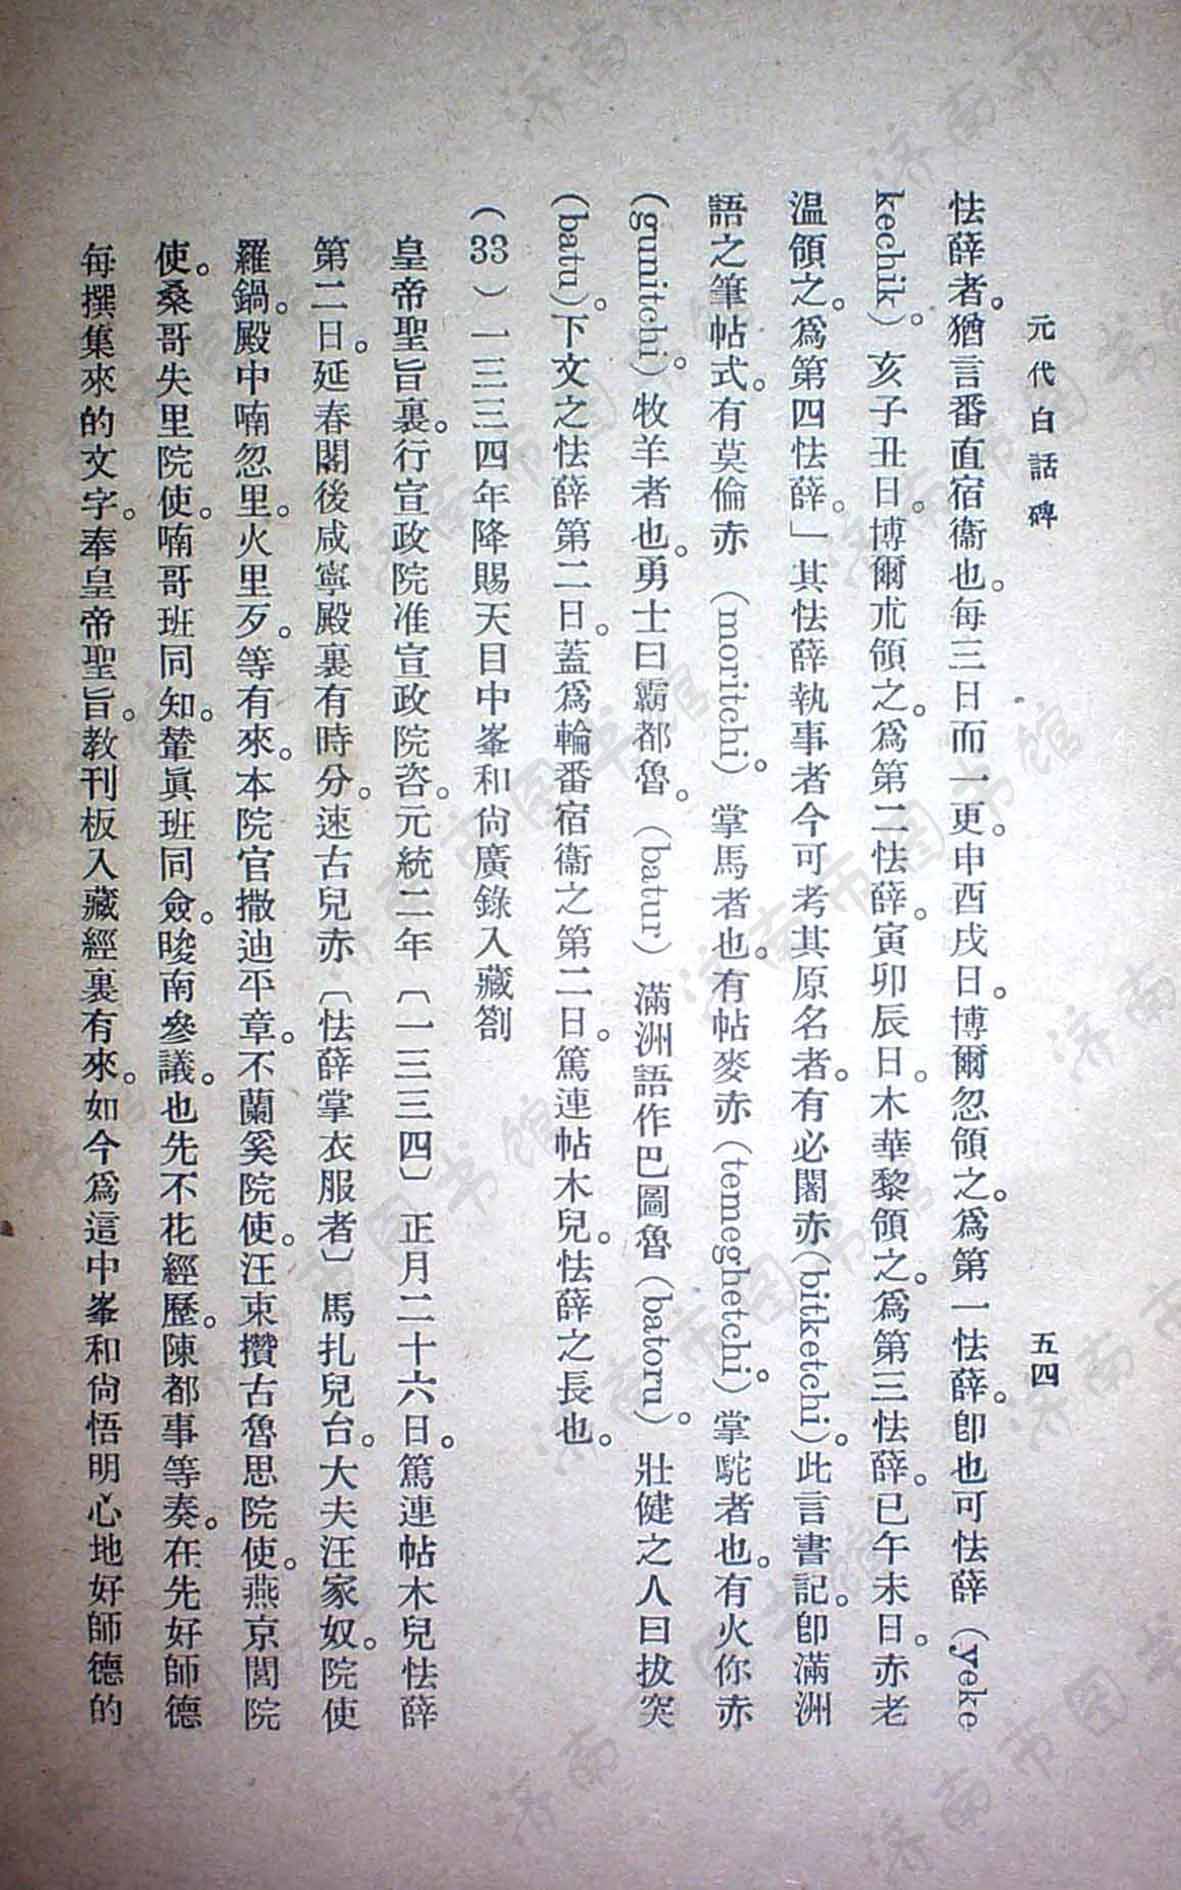 元代白話碑　　五四
怯薛者。猶言番直宿衞也。每三日而一更。申酉戌日。博爾忽領之。爲第一怯薛。卽也可怯薛（yeke
kechik）。亥子丑日。博爾朮領之。爲第二怯薛。寅卯辰日。木華黎領之。爲第三怯薛。巳午未日。赤老
溫領之。爲第四怯薛。」其怯薛執事者今可考其原名者。有必闍赤（bitketchi）。此言書記。卽滿洲
語之筆帖式。有莫倫赤（moritchi）。掌馬者也。有帖麥赤（temeghetchi）。掌駝者也。有火你赤
（gunitchi）。牧羊者也。勇士曰霸都魯。（batur）滿洲語作巴圖魯（batoru）。壯健之人曰拔突
（batu）。下文之怯薛第二日。蓋爲輪番宿衞之第二日。篤連帖木兒。怯薛之長也。
（33）一三三四年降賜天目中峯和尙廣錄入藏劄
皇帝聖旨裏。行宣政院准宣政院咨。元統二年〔一三三四〕正月二十六日。篤連帖木兒怯薛
第二日。延春閣後咸寧殿裏有時分。速古兒赤〔怯薛掌衣服者〕馬扎兒台。大夫汪家奴。院使
羅鍋。殿中喃忽里。火里歹。等有來。本院官撒迪平章。不蘭奚院使。汪束攢古魯思院使。燕京閭院
使。桑哥失里院使。喃哥班同知。輦眞班同僉。晙南參議。也先不花經歷。陳都事等奏。在先好師德
每撰集來的文字。奉皇帝聖旨。敎刊板入藏經裏有來。如今爲這中峯和尙悟明心地好師德的
济南市图书馆